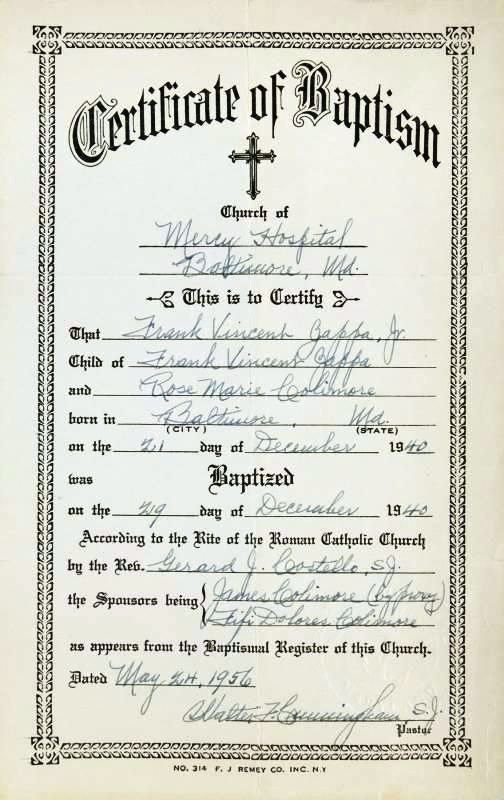 Certificate of Baptism
Church of
Mercy Hospital
Baltimore, Md.
This is to Certify
That Frank Vincent Zappa, Jr.
Child of Frank Vincent Zappa
and Rose Marie Colimore
born in Baltimore, Md.
(CITY) (STATE)
on the 21 day of December 1940
was Baptized
on the 29 day of December 1940
According to the Rite of the Roman Catholic Church
by the Rev. Gerard J. Costello, S.J.
the Sponsors being James Colimore (by proxy)
Fifi Dolores Colimore
as appears from the Baptismal Register of this Church.
Dated May 24, 1956
Walter F. Cunningham, S.J.
Pastor
NO. 314 F. J REMEY CO. INC. N.Y